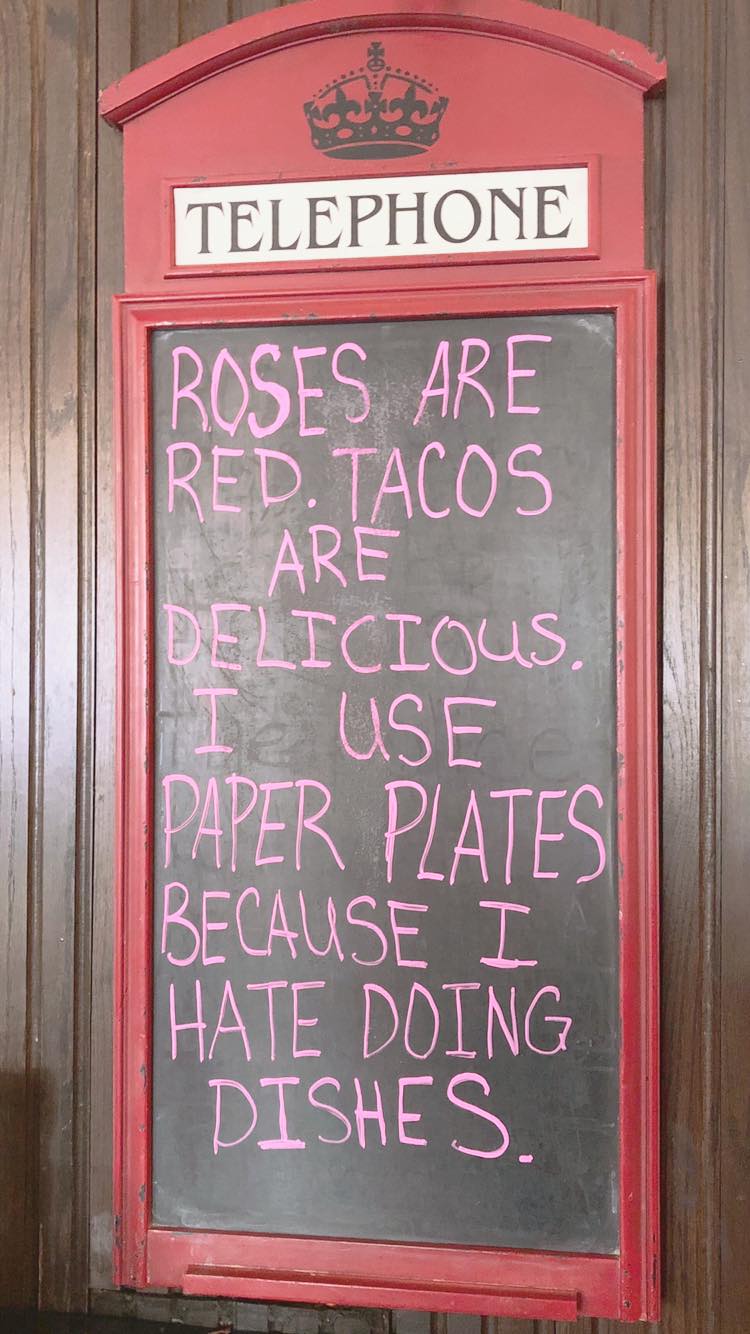 TELEPHONE
ROSES ARE
RED. TACOS
ARE
DELICIOUS.
I USE
PAPER PLATES
BECAUSE I
HATE DOING
DISHES.